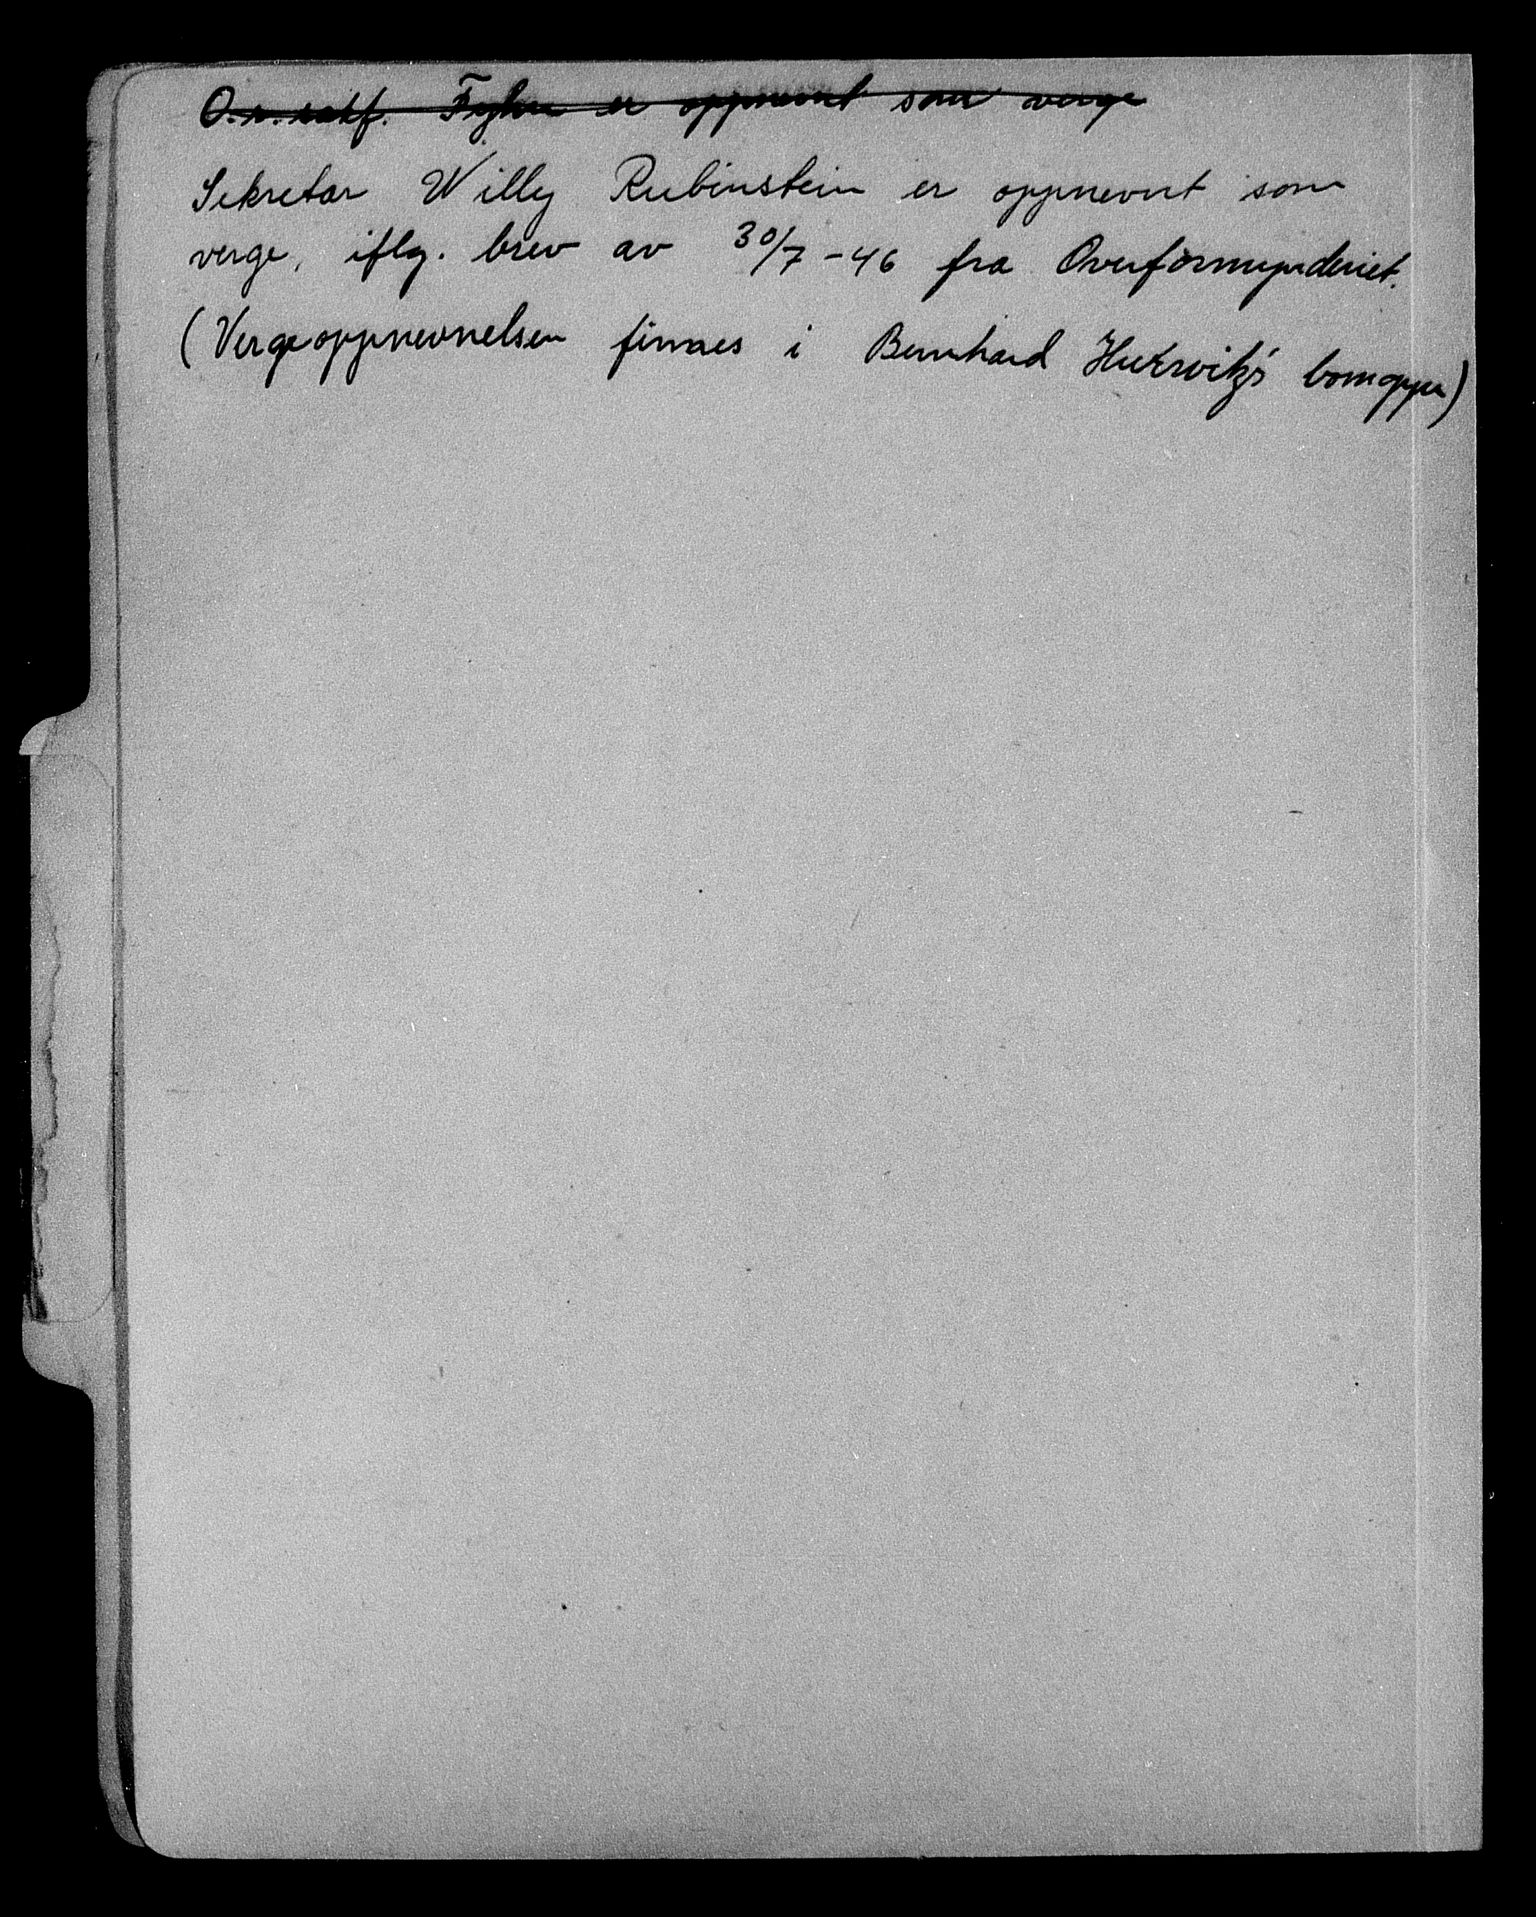 O.r.sakf. er oppnevnt som verge
Sekretær Willy Rubinstein er oppnevnt som
verge, iflg. brev av 30/7-46 fra Overformynderiet.
(Vergeoppnevnelsen finnes i Bernhard Hurwitz's bomappe)